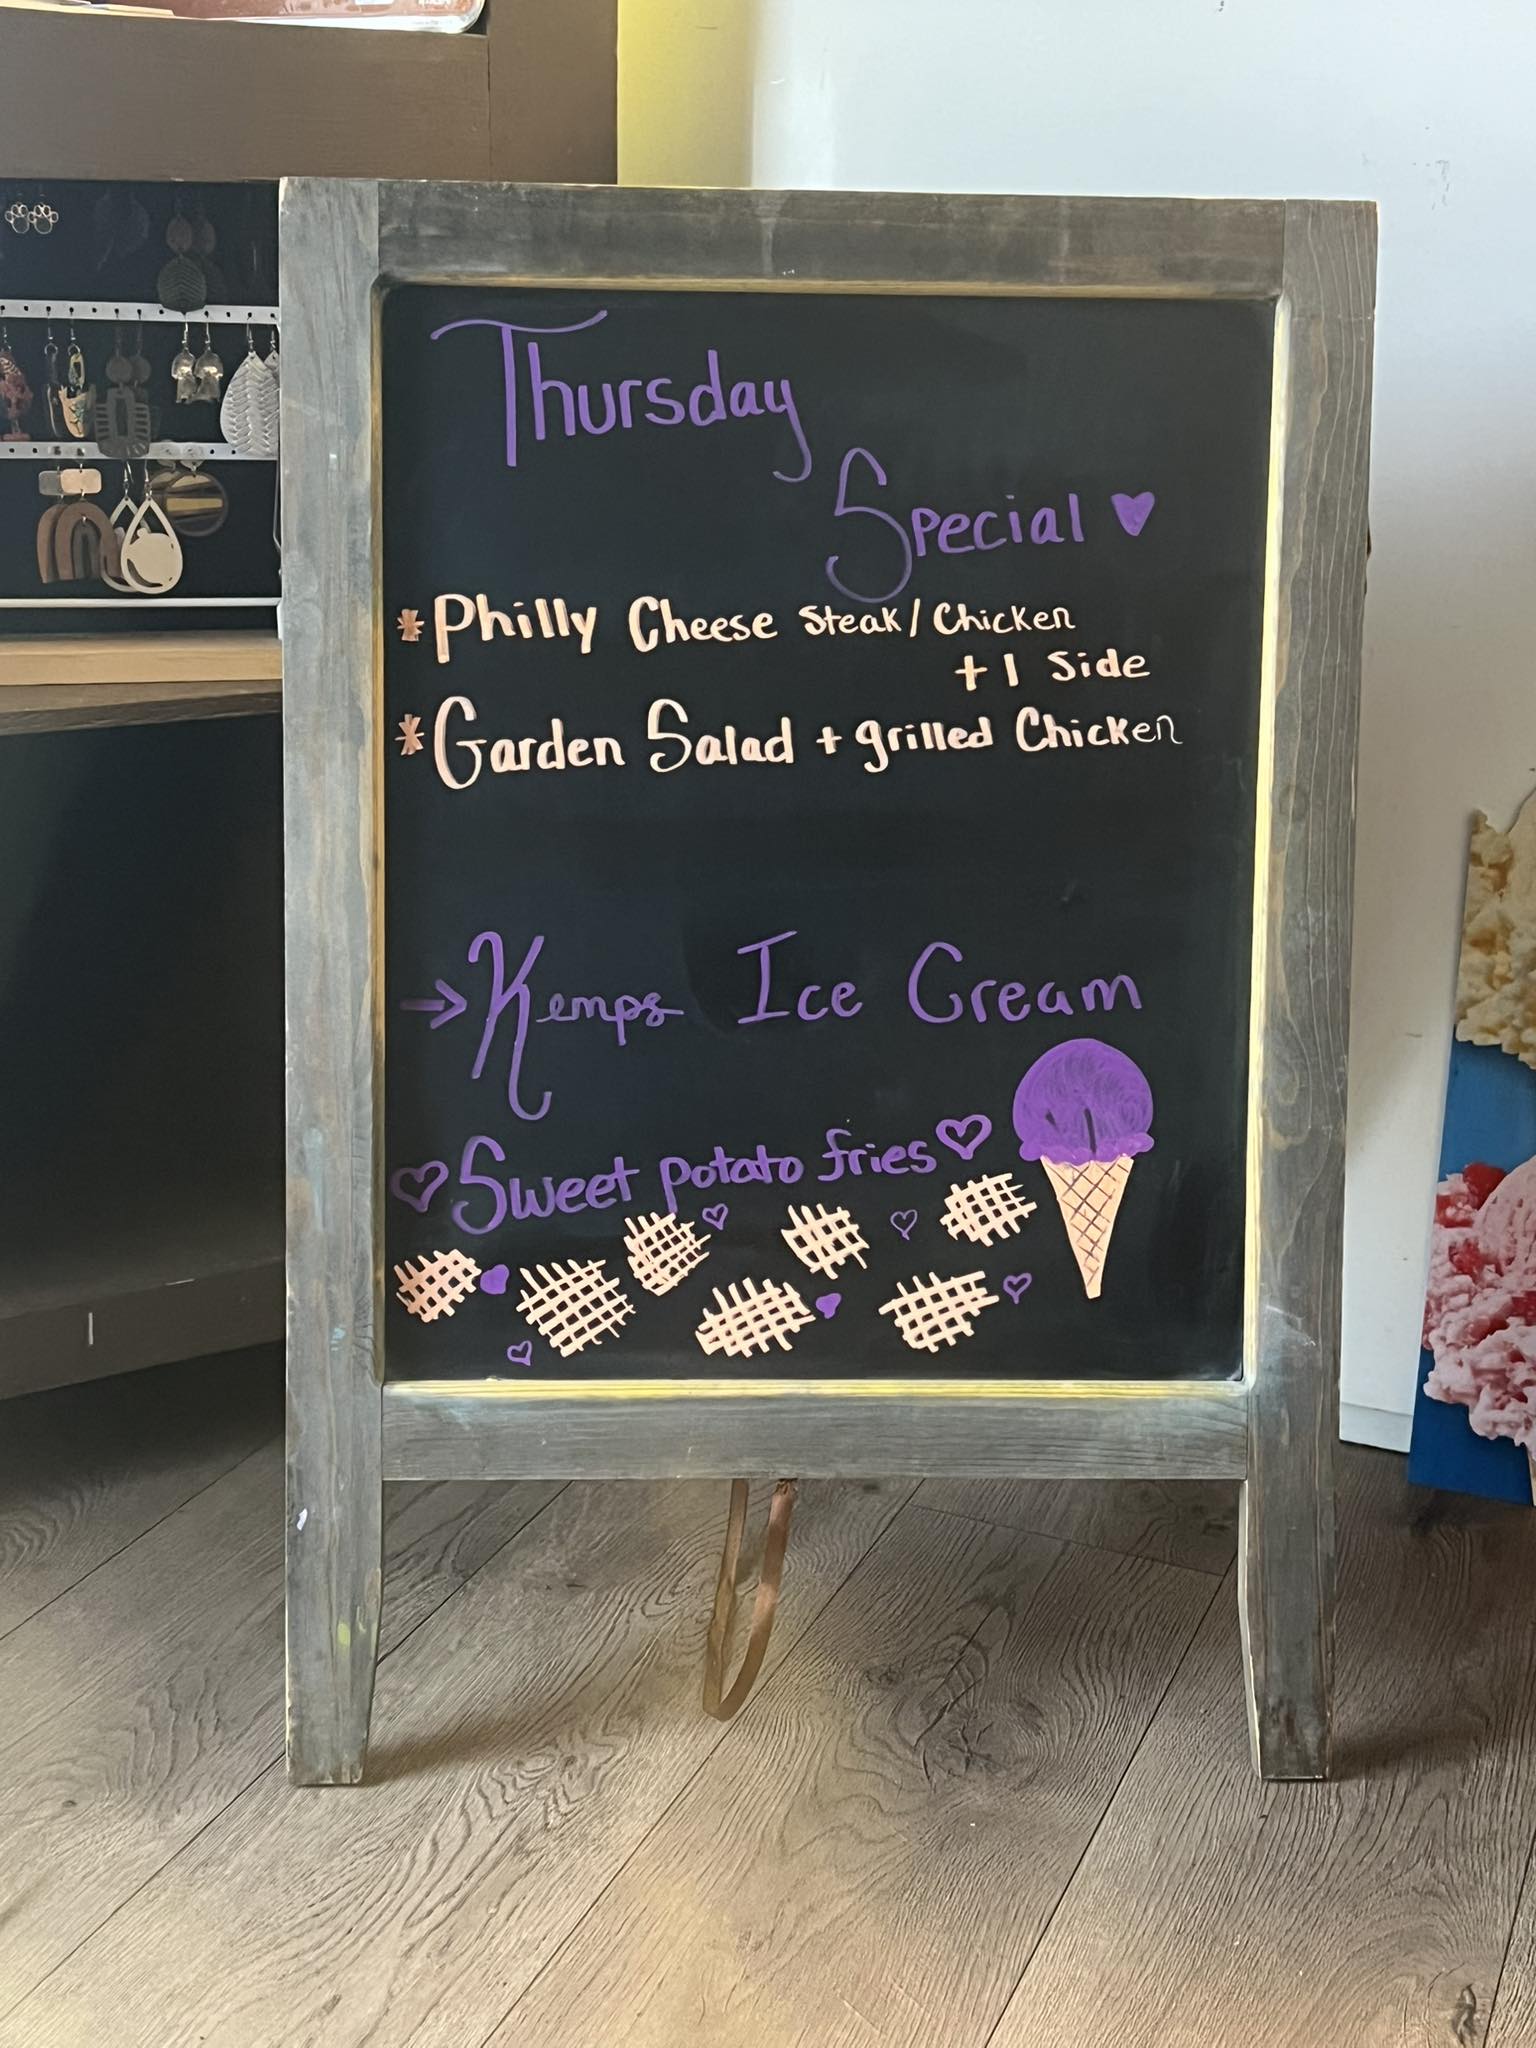 Thursday
Special
*Philly Cheese Steak/Chicken
+ 1 Side
*Garden Salad + grilled Chicken
→ Kemps Ice Cream
Sweet potato fries